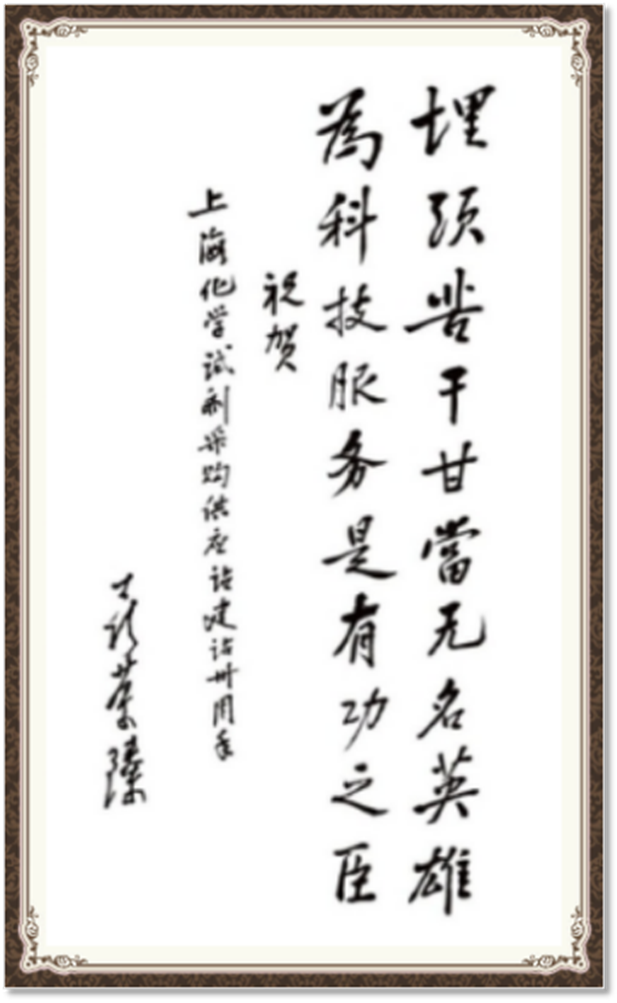 埋頭苦干甘當无名英雄
為科技服务是有功之臣
祝贺
上海化学试剂采购供应站建站卅周年
聂荣臻